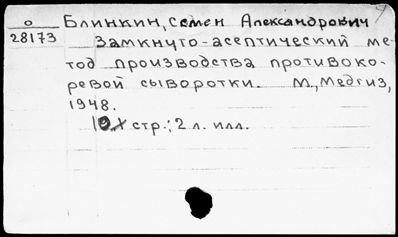 о Блинкин, Семен Александрович
28173 Замкнуто-асептический ме-
тод производства противоко-
ревой сыворотки. М., Медгиз,
1948.
стр.; 2 л. илл.